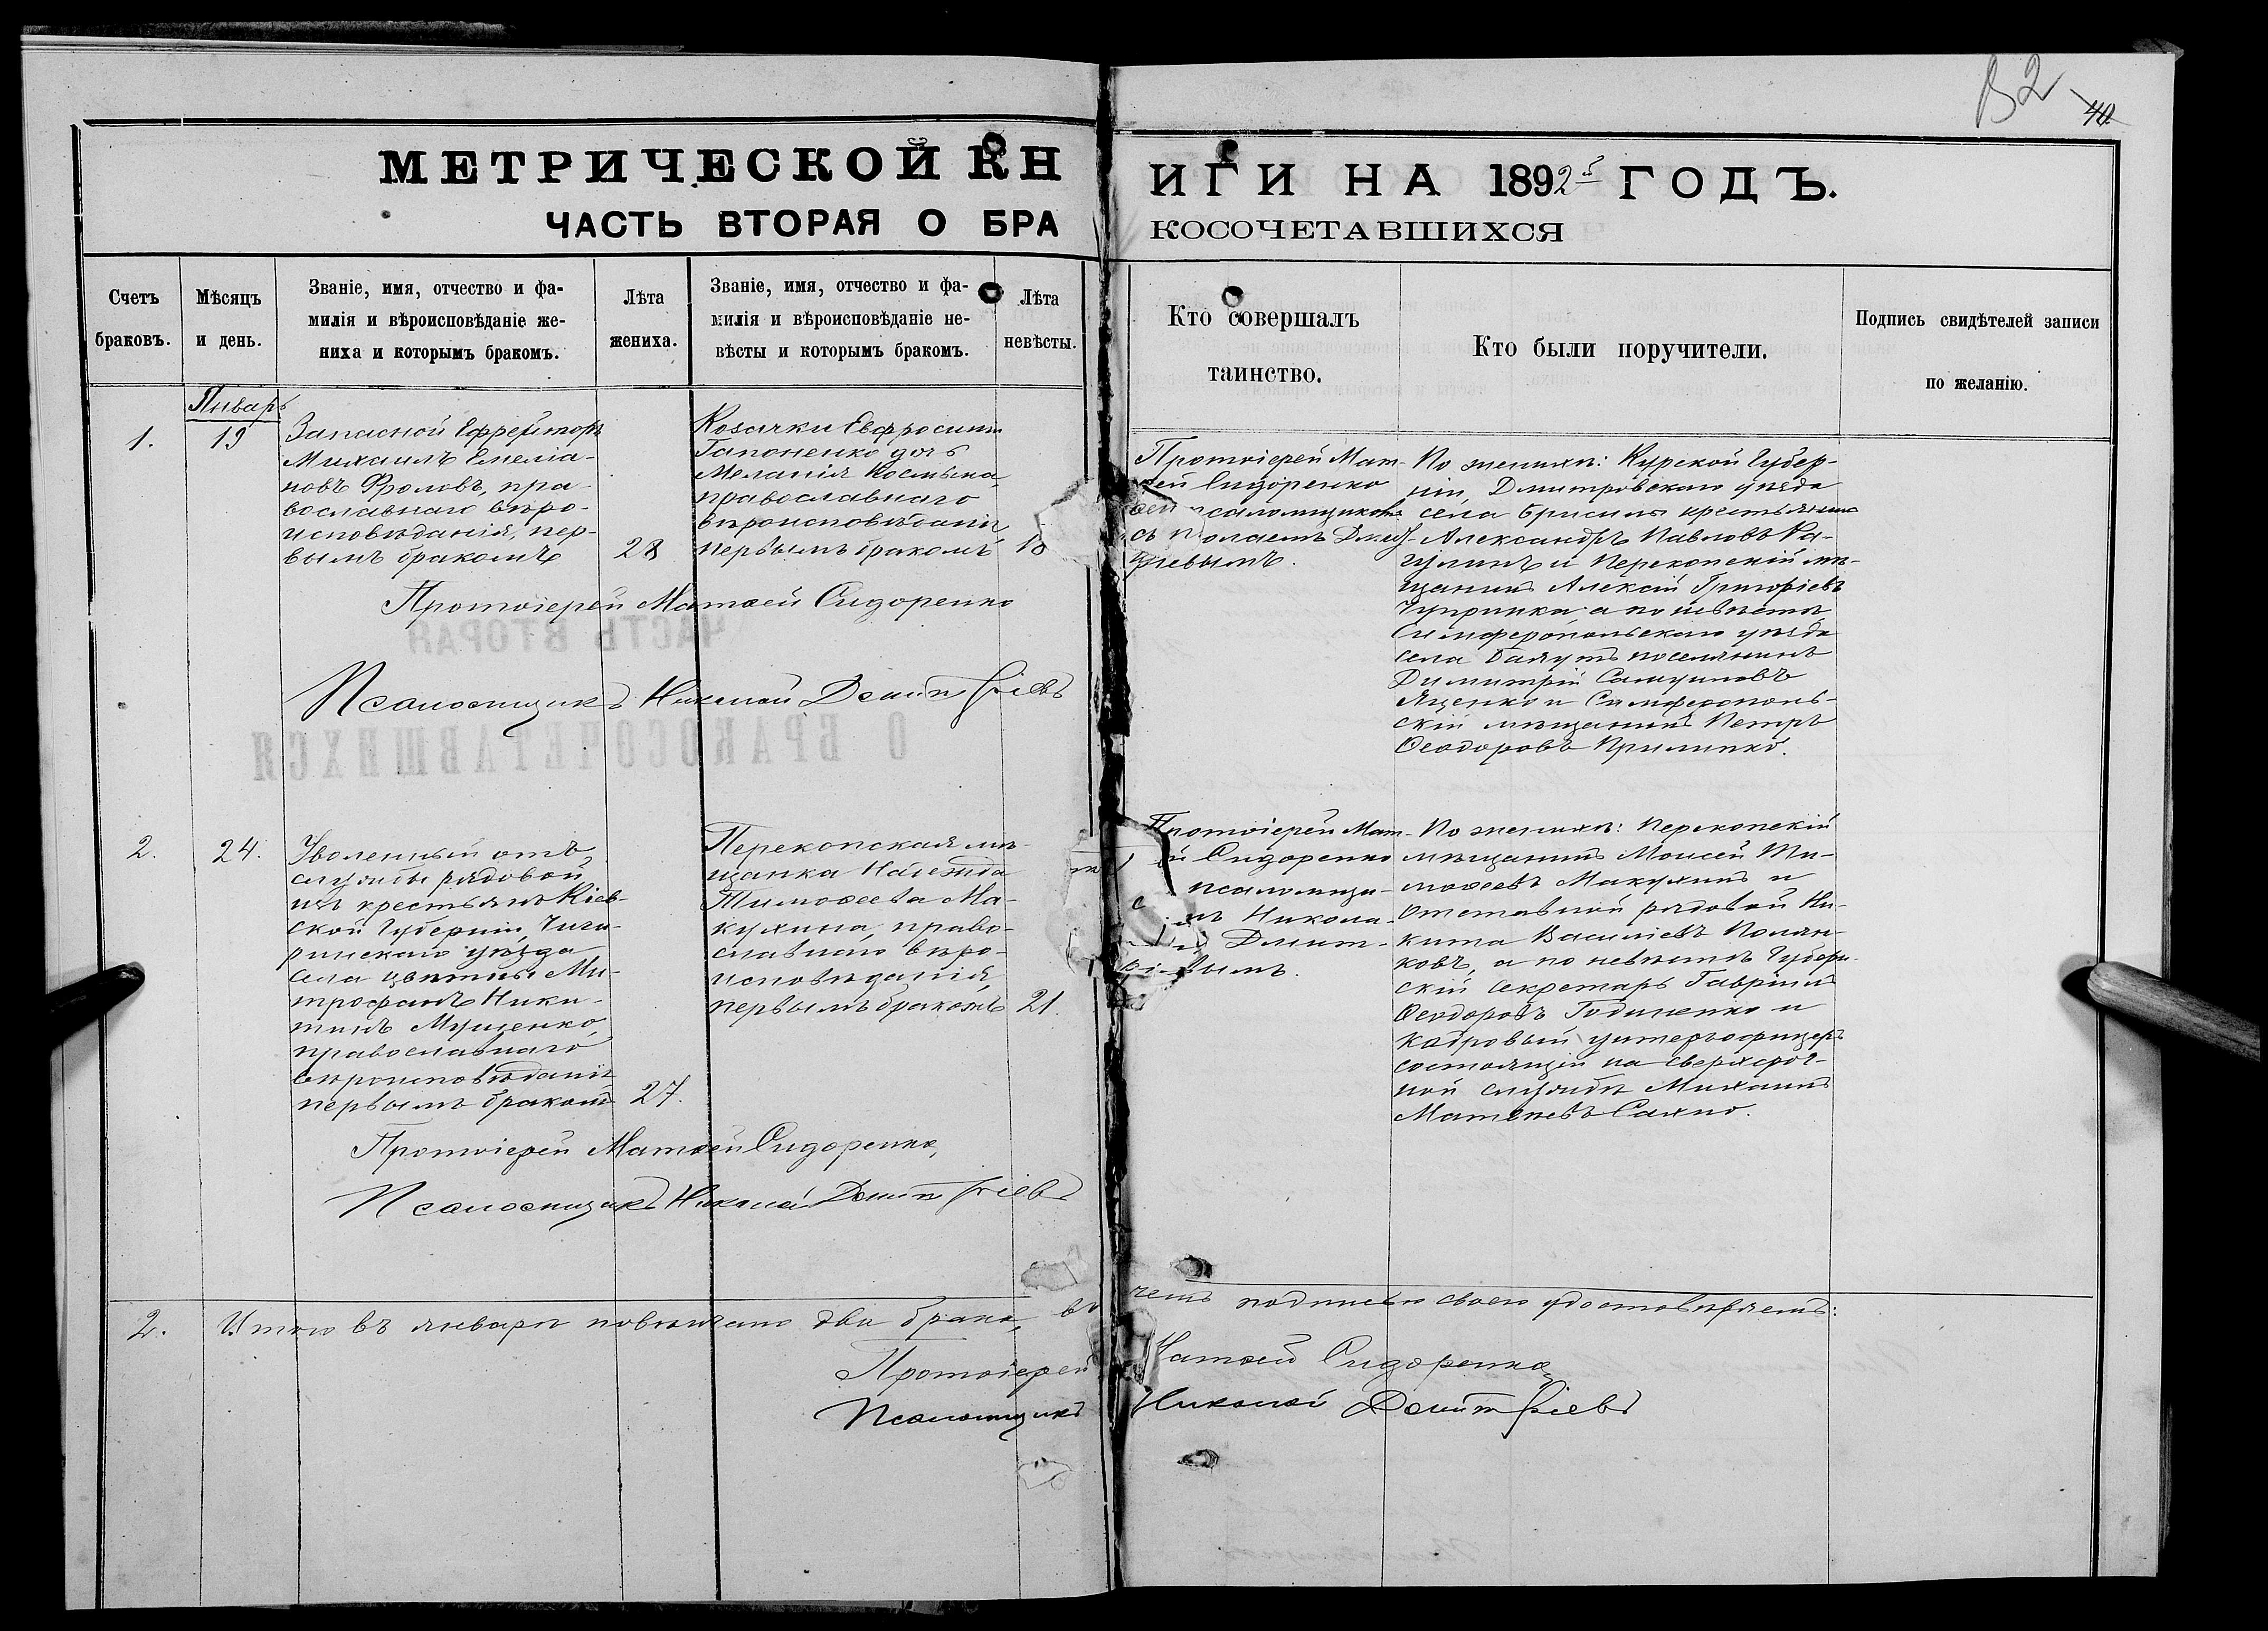 МЕТРИЧЕСКОЙ КН
ИГИ НА 1892й ГОДЪ.
ЧАСТЬ ВТОРАЯ О БРА
КОСОЧЕТАВШИХСЯ
Счетъ
браковъ.
Мѣсяцъ
и день.
Званіе, имя, отчество и фа-
милія и вѣроисповѣданіе же-
ниха и которымъ бракомъ.
Лѣта
жениха.
Званіе, имя, отчество и фа-
милія и вѣроисповѣданіе не-
вѣсты и которымъ бракомъ.
Лѣта
невѣсты.
Кто совершалъ
таинство.
Кто были поручители.
Подпись свидѣтелей записи
по желанію.
40
Январь
1.
19
Запасной Ефрейторъ
Михаилъ Емеліа-
новъ Фроловъ, пра-
вославнаго вѣро-
исповѣданія, пер-
вымъ бракомъ
28
Козачки Евфросиніи
Гапоненко дочь
Меланія
православнаго
вѣроисповѣданія
первымъ бракомъ
18
Протоіерей Мат-
ѳей Сидоренко
псаломщикомъ
По женихѣ: Курской Губер-
ніи, Дмитровскаго уѣзда
села крестьянинъ
Александръ Павловъ Ка-
и Перекопскій мѣ-
щанинъ Алексій Григоріевъ
Чупринка, а по невѣстѣ
Симферопольскаго уѣзда
села поселянинъ
Димитрій
Яценко и Симферополь-
скій мѣщанинъ Петръ
Ѳеодоровъ
Протоіерей Матѳей Сидоренко
Псаломщикъ Николай Дмитріевъ
2.
24.
Уволенный отъ
службы рядовой
изъ крестьянъ Кіев-
ской Губерніи, Чиги-
ринскаго уѣзда
села Цвѣтны Ми-
трофанъ Ники-
тинъ Мущенко,
православнаго
вѣроисповѣданія
первымъ бракомъ
27.
Перекопская мѣ-
щанка Надежда
Тимоѳеева Ма-
кухина, право-
славнаго вѣро-
исповѣданія,
первымъ бракомъ
21.
Протоіерей Мат-
ѳей Сидоренко
псаломщи-
Никола-
Дмит-
ріевымъ.
По женихѣ: Перекопскій
мѣщанинъ Моисей Ти-
моѳеевъ Макухинъ и
отставной рядовой Ни-
кита Василіевъ Полян-
ковъ, а по невѣстѣ Губерн-
скій секретарь Гавріилъ
Ѳеодоровъ Годиненко и
кадровый унтеръ-офицеръ
состоящій на сверхсроч-
ной службѣ Михаилъ
Матвѣевъ Сахно.
Протоіерей Матѳей Сидоренко,
Псаломщикъ Николай Дмитріевъ
2.
Итого въ январѣ повѣнчано два брака, въ
чемъ подписью своею удостовѣряемъ:
Протоіерей
Матѳей Сидоренко
Псаломщикъ
Николай Дмитріевъ